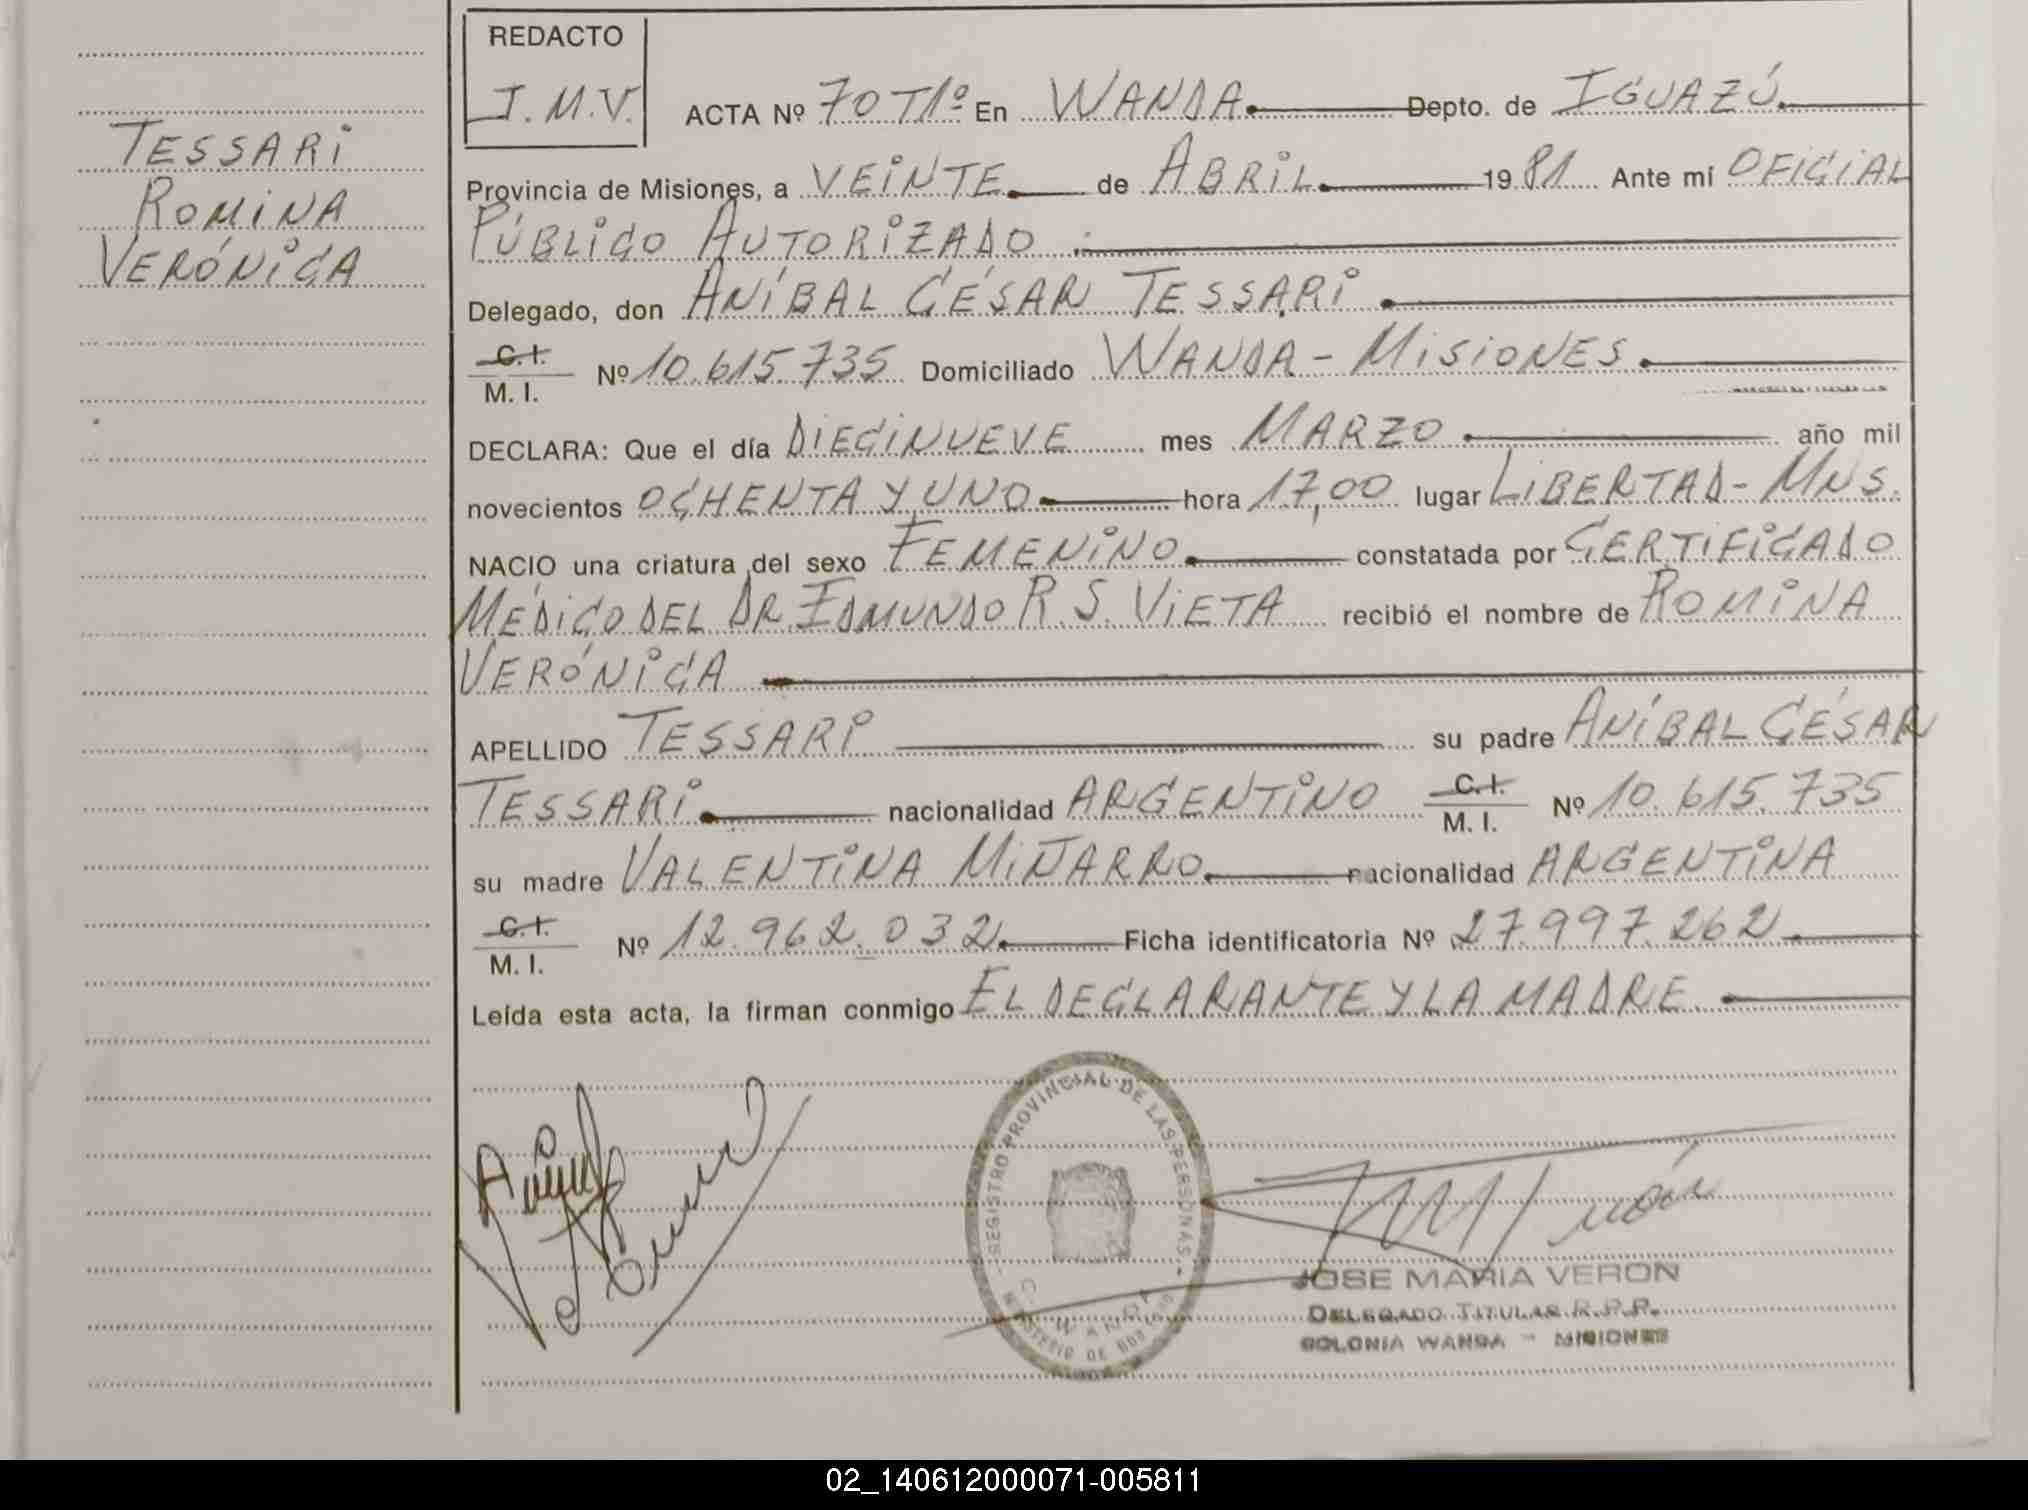 TESSARI
ROMINA
VERÓNICA
REDACTO
J.M.V.
ACTA Nº 70 T1º En WANDA Depto. de IGUAZÚ
Provincia de Misiones, a VEINTE de ABRIL 1981 Ante mí OFICIAL
PÚBLICO AUTORIZADO
Delegado, don ANÍBAL CÉSAR TESSARI
C.I.
M.I. Nº 10.615.735 Domiciliado WANDA - MISIONES
DECLARA: Que el día DIECINUEVE mes MARZO año mil
novecientos OCHENTA Y UNO hora 17,00 lugar LIBERTAD - MNS.
NACIO una criatura del sexo FEMENINO constatada por CERTIFICADO
MÉDICO DEL DR. EDMUNDO R. S. VIETA recibió el nombre de ROMINA
VERÓNICA
APELLIDO TESSARI su padre ANÍBAL CÉSAR
TESSARI nacionalidad ARGENTINO C.I. M.I. Nº 10.615.735
su madre VALENTINA MIÑARRO nacionalidad ARGENTINA
C.I.
M.I. Nº 12.962.032 Ficha identificatoria Nº 27.997.262
Leída esta acta, la firman conmigo EL DECLARANTE Y LA MADRE.
REGISTRO PROVINCIAL DE LAS PERSONAS
WANDA
JOSE MARIA VERON
DELEGADO TITULAR R.P.P.
COLONIA WANDA - MISIONES
02_140612000071-005811